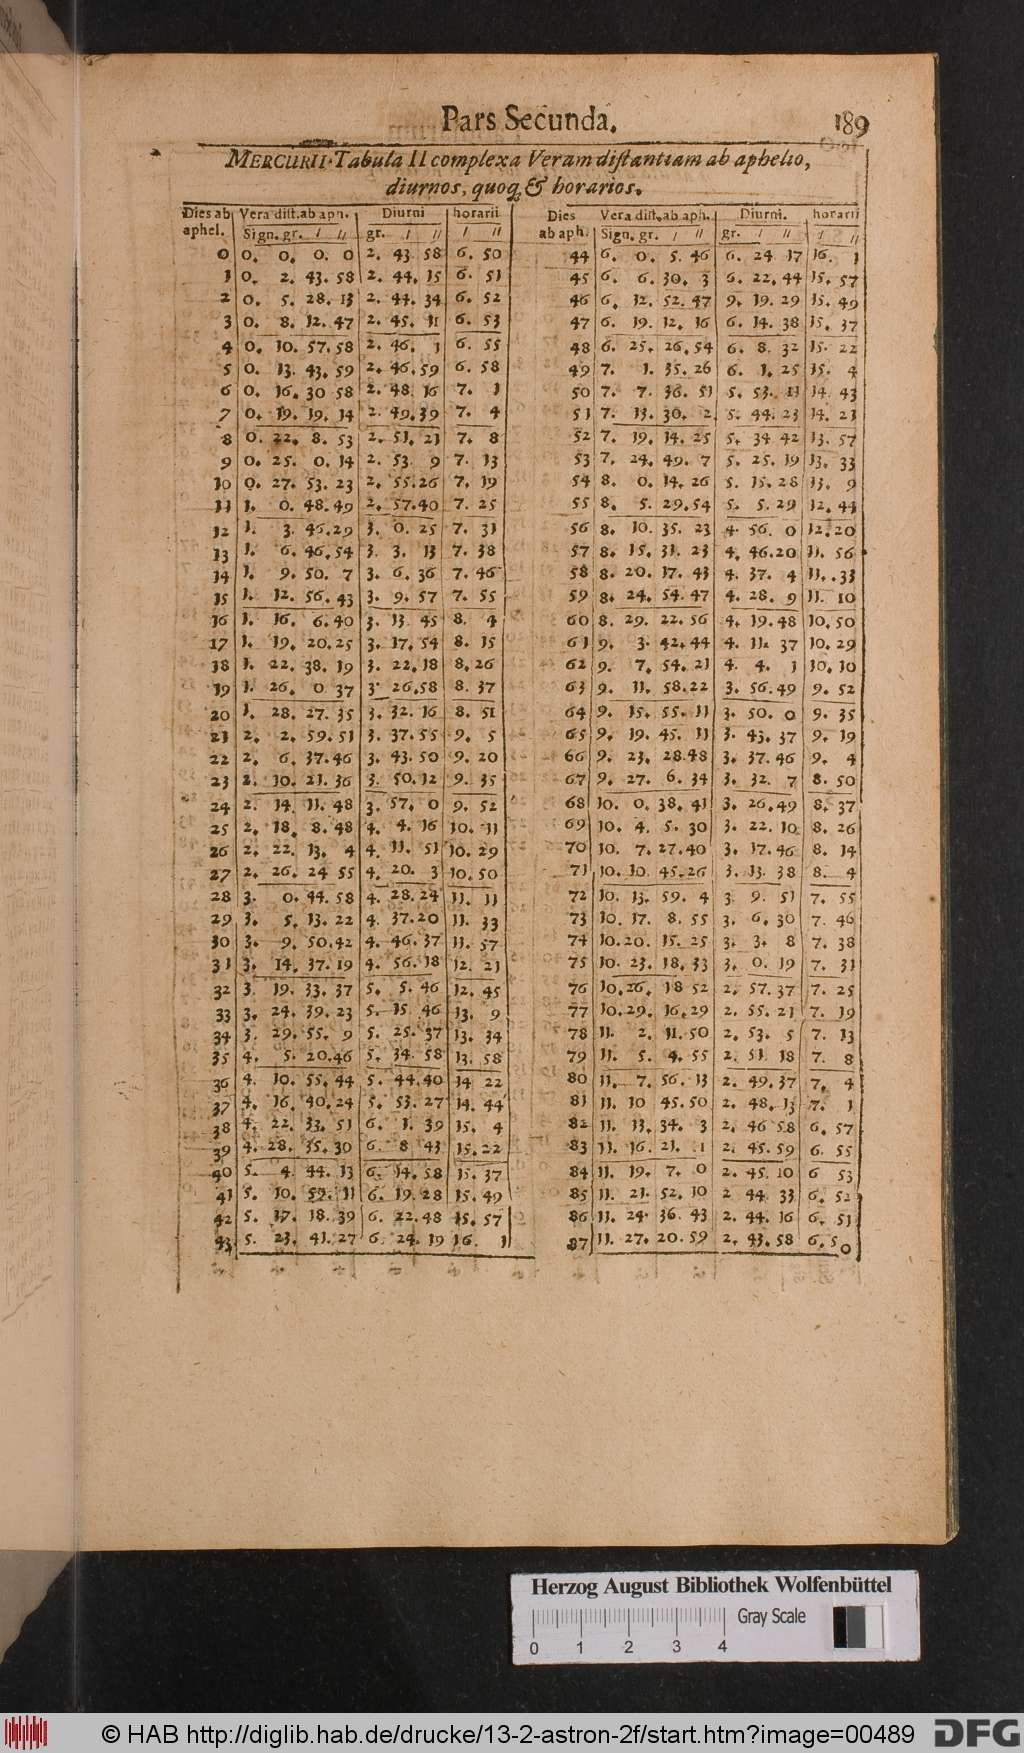 Pars Secunda. 189
MERCURII. Tabula II complexa Veram distantiam ab aphelio,
diurnos, quoq; & horarios.
Dies ab aphel. Vera dist. ab aph. Diurni horarii
Sign. gr. / // gr. / // / //
0 0. 0. 0. 0 2. 43. 58 6. 50
1 0. 2. 43. 58 2. 44. 15 6. 51
2 0. 5. 28. 13 2. 44. 34 6. 52
3 0. 8. 12. 47 2. 45. 11 6. 53
4 0. 10. 57. 58 2. 46. 1 6. 55
5 0. 13. 43. 59 2. 46. 59 6. 58
6 0. 16. 30 58 2. 48 16 7. 1
7 0. 19. 19. 14 2. 49. 39 7. 4
8 0. 22. 8. 53 2. 51. 21 7. 8
9 0. 25. 0. 14 2. 53. 9 7. 13
10 0. 27. 53. 23 2. 55. 26 7. 19
11 1. 0. 48. 49 2. 57. 40 7. 25
12 1. 3. 46. 29 3. 0. 25 7. 31
13 1. 6. 46. 54 3. 3. 13 7. 38
14 1. 9. 50. 7 3. 6. 36 7. 46
15 1. 12. 56. 43 3. 9. 57 7. 55
16 1. 16. 6. 40 3. 13 45 8. 4
17 1. 19. 20. 25 3. 17. 54 8. 15
18 1. 22. 38. 19 3. 22. 18 8. 26
19 1. 26. 0 37 3. 26. 58 8. 37
20 1. 28. 27. 35 3. 32. 16 8. 51
21 2. 2. 59. 51 3. 37. 55 9. 5
22 2. 6. 37. 46 3. 43. 50 9. 20
23 2. 10. 21. 36 3. 50. 12 9. 35
24 2. 14 11. 48 3. 57. 0 9. 52
25 2. 18. 8. 48 4. 4. 16 10. 11
26 2. 22. 13. 4 4. 11. 51 10. 29
27 2. 26. 24 55 4. 20. 3 10. 50
28 3. 0. 44. 58 4. 28. 24 11. 11
29 3. 5. 13. 22 4. 37. 20 11. 33
30 3. 9. 50. 42 4. 46. 37 11. 57
31 3. 14. 37. 19 4. 56. 18 12. 21
32 3. 19. 33. 37 5. 5. 46 12. 45
33 3. 24. 39. 23 5. 15 46 13. 9
34 3. 29. 55. 9 5. 25. 37 13. 34
35 4. 5. 20. 46 5. 34. 58 13. 58
36 4. 10. 55. 44 5. 44. 40 14 22
37 4. 16. 40. 24 5. 53. 27 14. 44
38 4. 22. 33. 51 6. 1. 39 15. 4
39 4. 28. 35. 30 6. 8 43 15. 22
40 5. 4. 44. 13 6. 14. 58 15. 37
41 5. 10. 59. 11 6. 19. 28 15. 49
42 5. 17. 18. 39 6. 22. 48 15. 57
43 5. 23. 41. 27 6. 24. 19 16. 1
Dies ab aph. Vera dist. ab aph. Diurni. horarii
Sign. gr. / // gr. / // / //
44 6. 0. 5. 46 6. 24 17 16. 1
45 6. 6. 30. 3 6. 22. 44 15. 57
46 6. 12. 52. 47 9. 19. 29 15. 49
47 6. 19. 12. 16 6. 14. 38 15. 37
48 6. 25. 26. 54 6. 8. 32 15. 22
49 7. 1. 35. 26 6. 1. 25 15. 4
50 7. 7. 36. 51 5. 53. 11 14. 43
51 7. 13. 30. 2 5. 44. 23 14. 21
52 7. 19. 14. 25 5. 34 42 13. 57
53 7. 24. 49. 7 5. 25. 19 13. 33
54 8. 0. 14. 26 5. 15. 28 13. 9
55 8. 5. 29. 54 5. 5. 29 12. 44
56 8. 10. 35. 23 4. 56. 0 12. 20
57 8. 15. 31. 23 4. 46. 20 11. 56
58 8. 20. 17. 43 4. 37. 4 11. 33
59 8. 24. 54. 47 4. 28. 9 11. 10
60 8. 29. 22. 56 4. 19. 48 10. 50
61 9. 3. 42. 44 4. 11. 37 10. 29
62 9. 7. 54. 21 4. 4. 1 10. 10
63 9. 11. 58. 22 3. 56. 49 9. 52
64 9. 15. 55. 11 3. 50. 0 9. 35
65 9. 19. 45. 11 3. 43. 37 9. 19
66 9. 23. 28. 48 3. 37. 46 9. 4
67 9. 27. 6. 34 3. 32. 7 8. 50
68 10. 0. 38. 41 3. 26. 49 8. 37
69 10. 4. 5. 30 3. 22. 10 8. 26
70 10. 7. 27. 40 3. 17. 46 8. 14
71 10. 10. 45. 26 3. 13. 38 8. 4
72 10. 13. 59. 4 3. 9. 51 7. 55
73 10. 17. 8. 55 3. 6. 30 7. 46
74 10. 20. 15. 25 3. 3. 8 7. 38
75 10. 23. 18. 33 3. 0. 19 7. 31
76 10. 26. 18 52 2. 57. 37 7. 25
77 10. 29. 16. 29 2. 55. 21 7. 19
78 11. 2. 11. 50 2. 53. 5 7. 13
79 11. 5. 4. 55 2. 51. 18 7. 8
80 11. 7. 56. 13 2. 49. 37 7. 4
81 11. 10 45. 50 2. 48. 13 7. 1
82 11. 13. 34. 3 2. 46 58 6. 57
83 11. 16. 21. 1 2. 45. 59 6. 55
84 11. 19. 7. 0 2. 45. 10 6 53
85 11. 21. 52. 10 2 44. 33 6. 52
86 11. 24. 36. 43 2. 44. 16 6. 51
87 11. 27. 20. 59 2. 43. 58 6. 50
Herzog August Bibliothek Wolfenbüttel
Gray Scale
0 1 2 3 4
© HAB http://diglib.hab.de/drucke/13-2-astron-2f/start.htm?image=00489 DFG